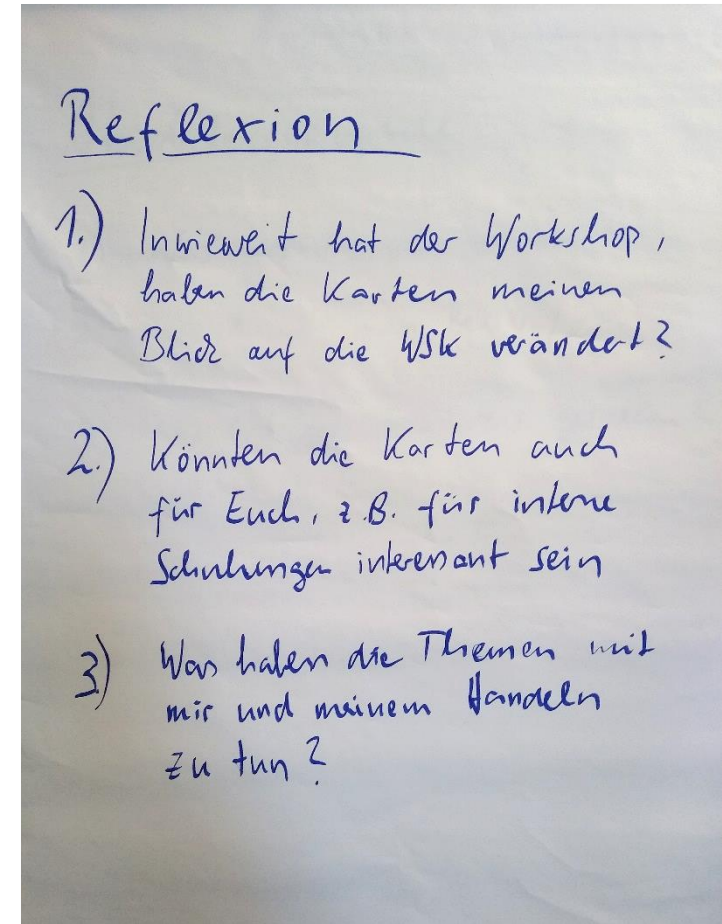 Reflexion
1.) Inwieweit hat der Workshop,
haben die Karten meinen
Blick auf die WSK verändert?
2.) Könnten die Karten auch
für Euch, z.B. für interne
Schulungen interessant sein
3) Was haben die Themen mit
mir und meinem Handeln
zu tun?